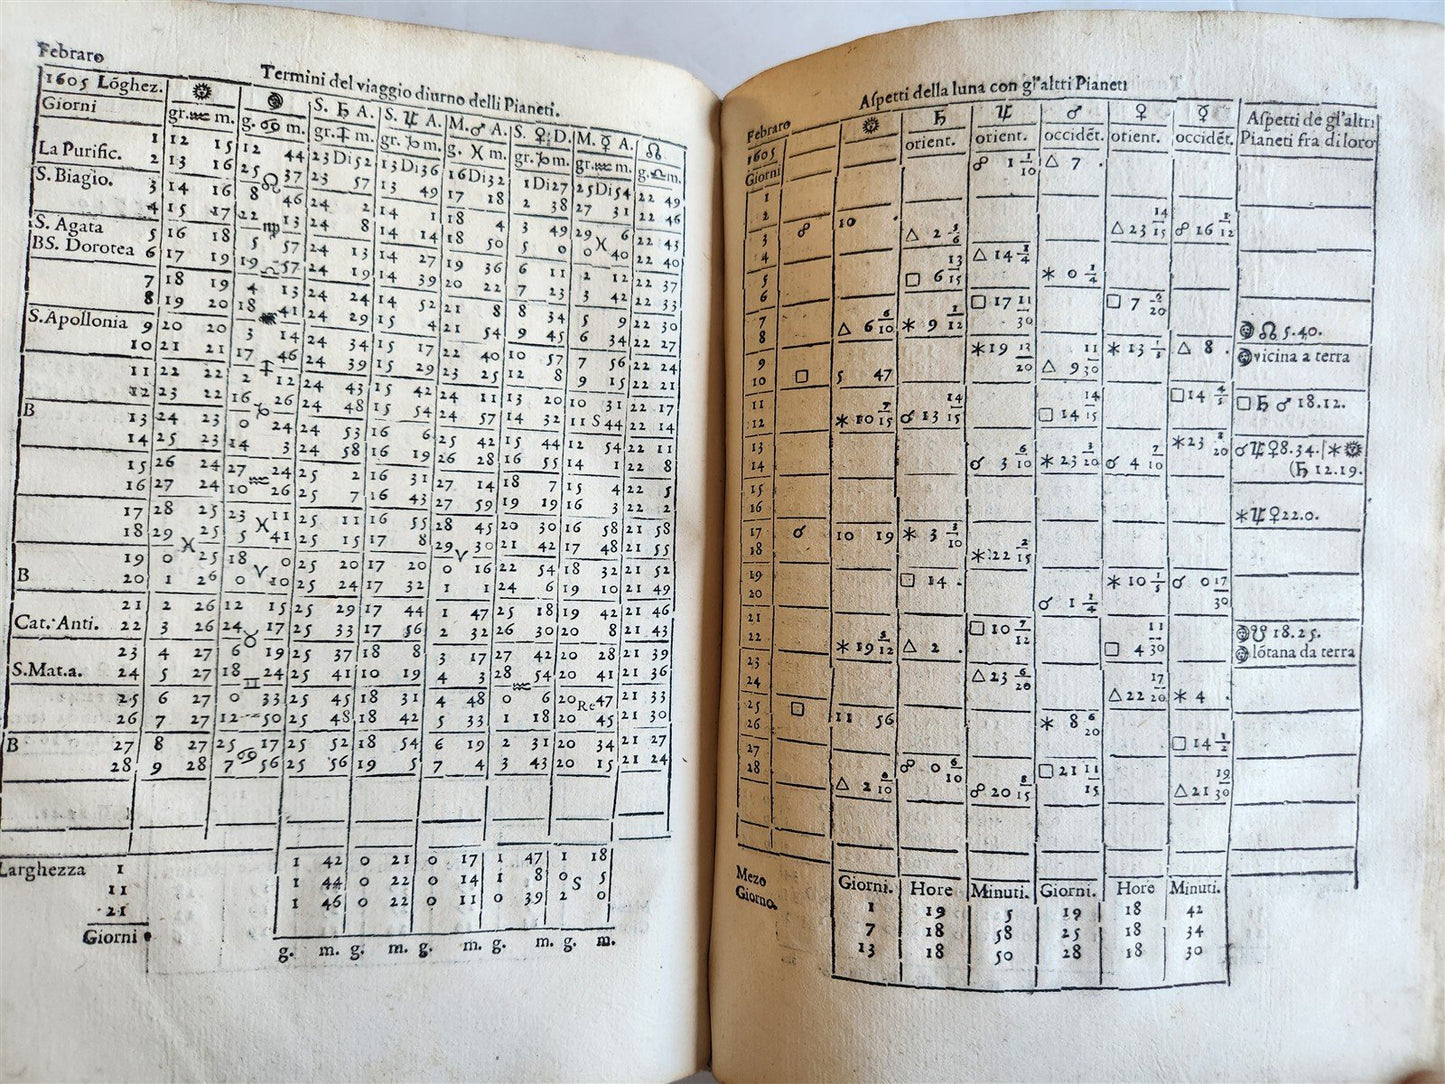 Febraro
Termini del viaggio diurno delli Pianeti.
1605 Lõghez. S. ♄ A. S. ♃ A. M. ♂ A. S. ♀ D. M. ☿ A. ☊
Giorni gr.♒ m. g. ♋ m. gr.♐ m. gr.♑ m. g. ♓ m. gr.♑ m. gr.♒ m. g.♎ m.
1 12 15 12 44 23 Di 52 13 Di 36 16 Di 32 1 Di 27 25 Di 54 22 49
La Purific. 2 13 16 25 37 23 57 13 49 17 18 2 38 27 31 22 46
S. Biagio. 3 14 16 8 46 24 2 14 1 18 4 3 49 29 6 22 43
4 15 17 22 13 24 8 14 14 18 50 5 0 0 40 22 40
S. Agata 5 16 18 5 57 24 13 14 27 19 36 6 11 2 12 22 37
BS. Dorotea 6 17 19 19 57 24 19 14 39 20 22 7 23 3 42 22 33
7 18 19 4 13 24 24 14 52 21 8 8 34 5 9 22 30
8 19 20 18 41 24 29 15 4 21 54 9 45 6 34 22 27
S. Apollonia 9 20 20 3 14 24 34 15 17 22 40 10 57 7 56 22 24
10 21 21 17 46 24 39 15 29 23 25 12 8 9 15 22 21
11 22 22 2 12 24 43 15 42 24 11 13 20 10 31 22 17
12 23 22 16 26 24 48 15 54 24 57 14 32 11 S 44 22 14
B 13 24 23 0 24 24 53 16 6 25 42 15 44 12 54 22 11
14 25 23 14 3 24 58 16 19 26 28 16 55 14 1 22 8
15 26 24 27 24 25 2 16 31 27 14 18 7 15 4 22 5
16 27 24 10 26 25 7 16 43 27 59 19 19 16 3 22 2
17 28 25 23 11 25 11 16 55 28 45 20 30 16 58 21 58
18 29 25 5 41 25 15 17 8 29 30 21 42 17 48 21 55
19 0 25 18 0 25 20 17 20 0 16 22 54 18 32 21 52
B 20 1 26 0 10 25 24 17 32 1 1 24 6 19 10 21 49
21 2 26 12 15 25 29 17 44 1 47 25 18 19 42 21 46
Cat. Anti. 22 3 26 24 17 25 33 17 56 2 32 26 30 20 8 21 43
23 4 27 6 19 25 37 18 8 3 17 27 42 20 28 21 39
S. Mat. a. 24 5 27 18 24 25 41 10 19 4 3 28 54 20 41 21 36
25 6 27 0 33 25 45 18 31 4 48 0 6 20 Re 47 21 33
26 7 27 12 50 25 48 18 42 5 33 1 18 20 45 21 30
B 27 8 27 25 17 25 52 18 54 6 19 2 31 20 34 21 27
28 9 28 7 56 25 56 19 5 7 4 3 43 20 15 21 24
Larghezza 1 1 42 0 21 0 17 1 47 1 18
11 1 44 0 22 0 14 1 8 0 S 5
21 1 46 0 22 0 11 0 39 2 0
Giorni g. m. g. m. g. m. g. m. g. m.
Aspetti della luna con gl'altri Pianeti
Febraro ♄ ♃ ♂ ♀ ☿ Aspetti de gl'altri
1605 orient. orient. occidẽt. orient. occidẽt. Pianeti fra di loro
Giorni
1 ☍ 1 1/10 △ 7 .
2
3 ☍ 10 △ 2 5/6 △ 23 14/15 ☍ 16 1/12
4 △ 14 3/4
5 □ 6 13/15 ⚹ 0 1/4
6 □ 17 11/30 □ 7
7 △ 6 6/10 ⚹ 9 1/12 ☊ 5.40.
8 ⚹ 19 13/20 ⚹ 13 △ 8 . vicina a terra
9 △ 9 11/30
10 □ 5 47 □ 14 4/5
11 □ 14 14/15 □ ♄ ♂ 18.12.
12 ⚹ 10 7/15 ☌ 13 14/15
13 ⚹ 23 ☌ ♃ ♀ 8.34. / ⚹
14 ☌ 3 6/10 ⚹ 23 3/20 ☌ 4 7/10 (♄ 12.19.
15
16 ⚹ ♃ ♀ 22.0.
17 ☌ 10 19 ⚹ 3 3/10
18 ⚹ 22 2/15
19 □ 14 . ⚹ 10 1/5 ☌ 0 17/30
20 ☌ 1 1/4
21 □ 10 7/12
22 ⚹ 19 5/12 △ 2 . □ 4 11/30 ☋ 18.25.
23 △ 23 6/20 lõtana da terra
24 △ 22 17/20 ⚹ 4 .
25 □
26 11 56 ⚹ 8 6/20
27 □ 14 1/2
28 △ 2 6/10 ☍ 0 6/10 ☍ 20 8/15 □ 21 11/15 △ 21 19/30
Mezo Giorni. Hore Minuti. Giorni. Hore Minuti.
Giorno. 1 19 5 19 18 42
7 18 58 25 18 34
13 18 50 28 18 30